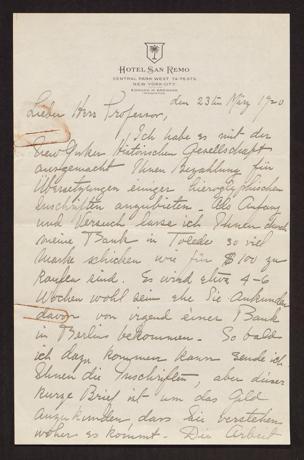 HOTEL SAN REMO
CENTRAL PARK WEST 74-75 STS.
NEW YORK CITY
EDMUND M. BRENNAN
den 23ten März 1920
Lieber Herr Professor,
Ich habe es mit der
New Yorker Historischen Gesellschaft
ausgemacht Ihnen Bezahlung für
Übersetzungen einiger hieroglyphischen
Inschriften anzubieten. Als Anfang
und Versuch lasse ich Ihnen durch
meine Bank in Toledo so viel
Marke schicken wie für $100 zu
kaufen sind. Es wird etwa 4-6
Wochen wohl sein ehe Sie Ankunden
davon von irgend einer Bank
in Berlin bekommen. So bald
ich dazu kommen kann sende ich
Ihnen die Inschriften, aber dieser
kurze Brief ist um das Geld
anzukunden dass Sie verstehen
woher es kommt. Die Arbeit